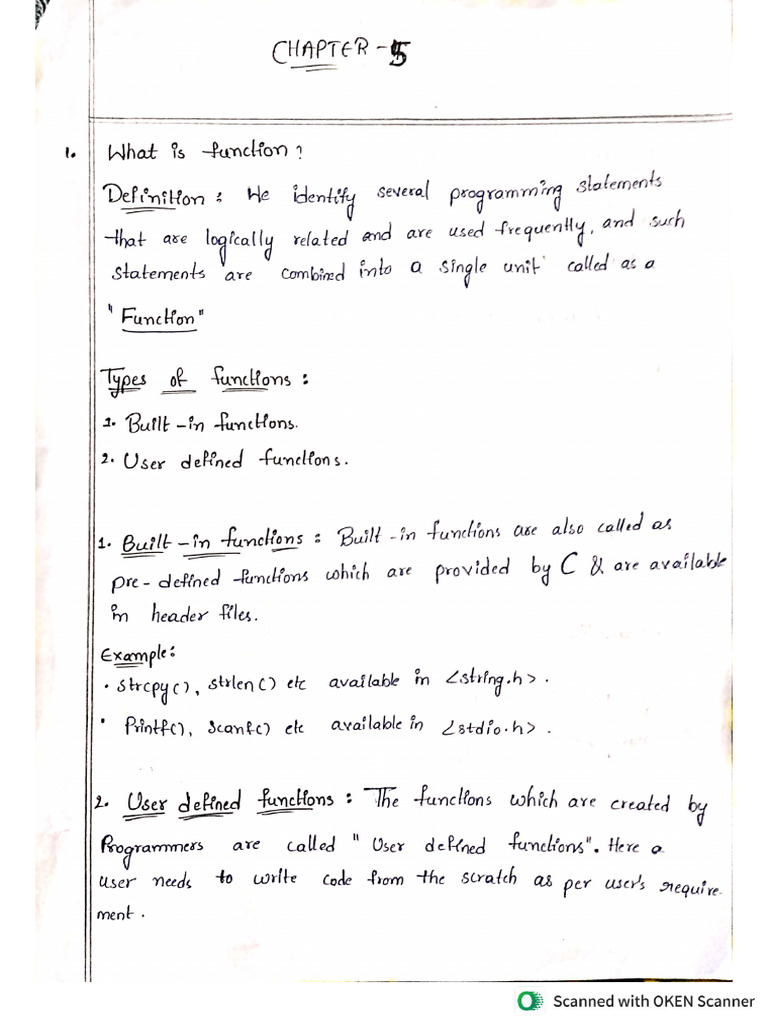 CHAPTER - 5
1. What is function?
Definition : We identify several programming statements
that are logically related and are used frequently, and such
statements are combined into a single unit called as a
"Function"
Types of functions :
1. Built-in functions.
2. User defined functions.
1. Built-in functions : Built-in functions are also called as
pre-defined functions which are provided by C & are available
in header files.
Example:
• strcpy(), strlen() etc available in <string.h>.
• Printf(), Scanf() etc available in <stdio.h>.
2. User defined functions : The functions which are created by
Programmers are called "User defined functions". Here a
user needs to write code from the scratch as per user's require-
ment.
Scanned with OKEN Scanner